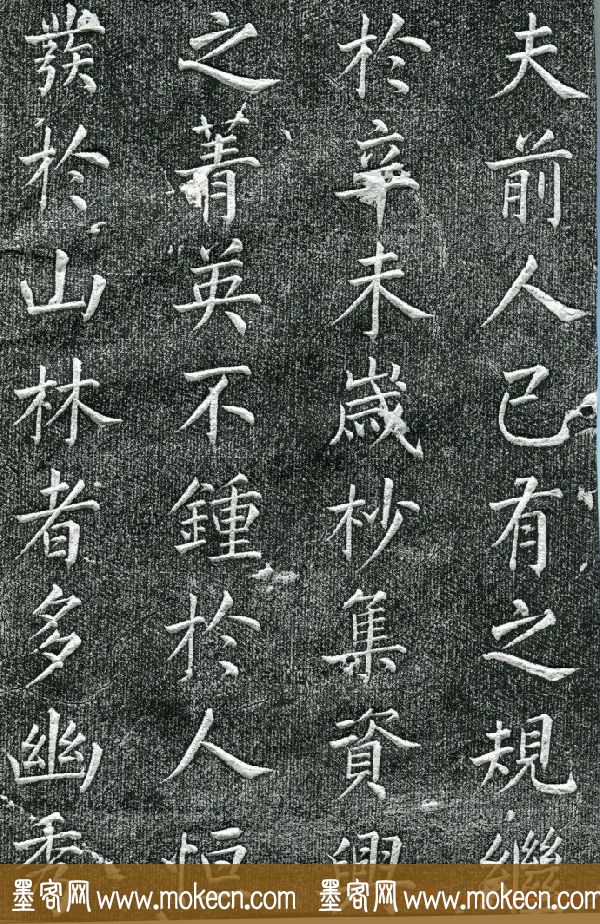 夫前人已有之規繼
於辛未歲杪集資興
之菁英不鍾於人恒
發於山林者多幽秀
墨客网 www.mokecn.com 墨客网 www.mokecn.com